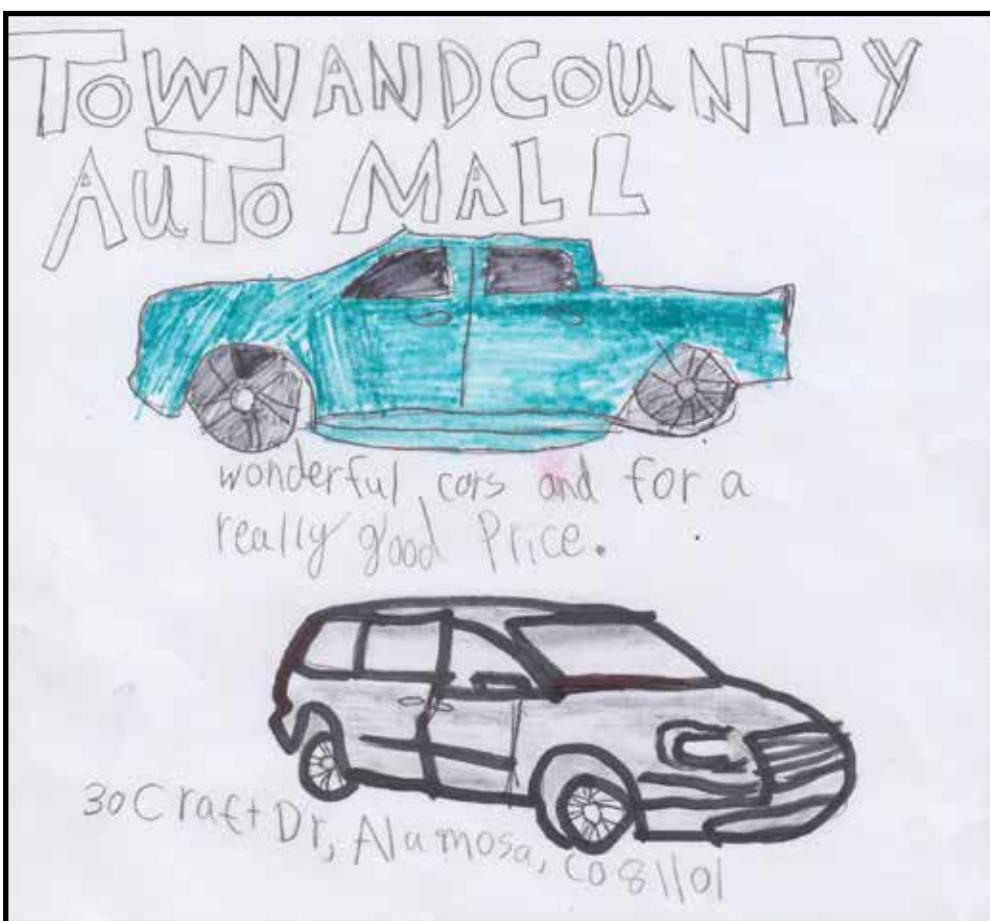 TOWNANDCOUNTRY
AUTO MALL
wonderful cars and for a
really good Price.
30 Craft Dr, Alamosa, CO 81101